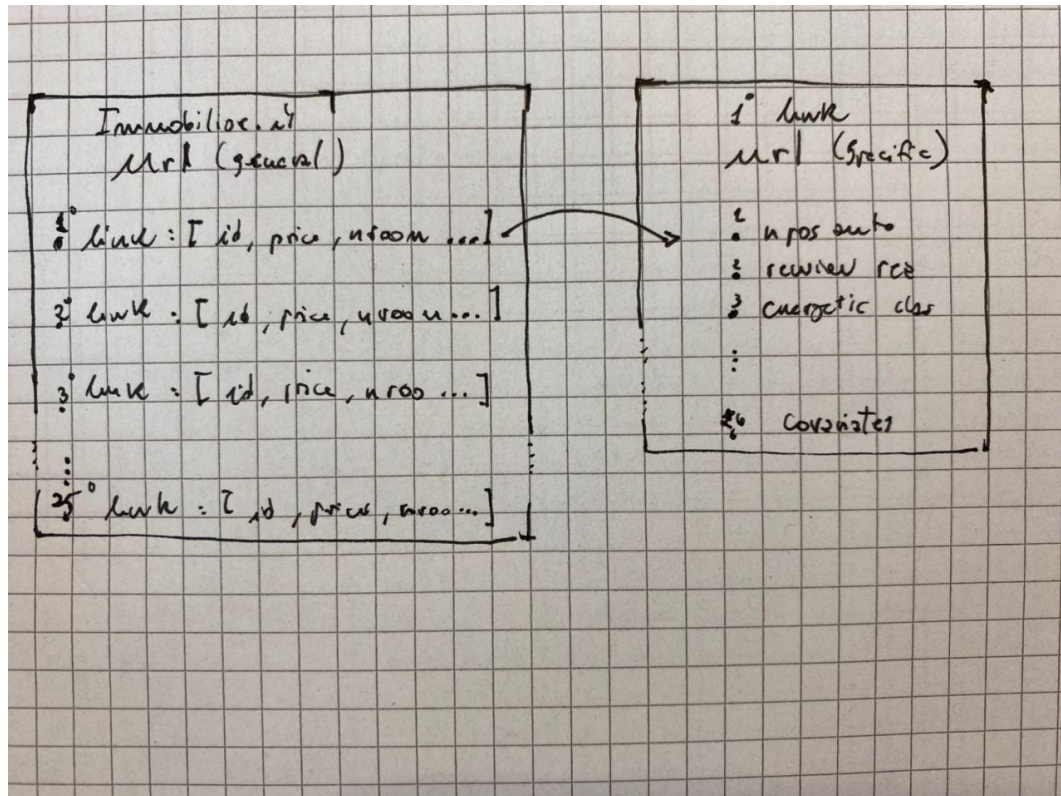 Immobiliare.it
url (general)
1° link : [ id, price, nroom ...]
2° link : [ id, price, nroom ...]
3° link : [ id, price, nroo ...]
25° link : [ id, price, nroo ...]
1° link
url (specific)
1 n pos auto
2
3 energetic clas
covariates